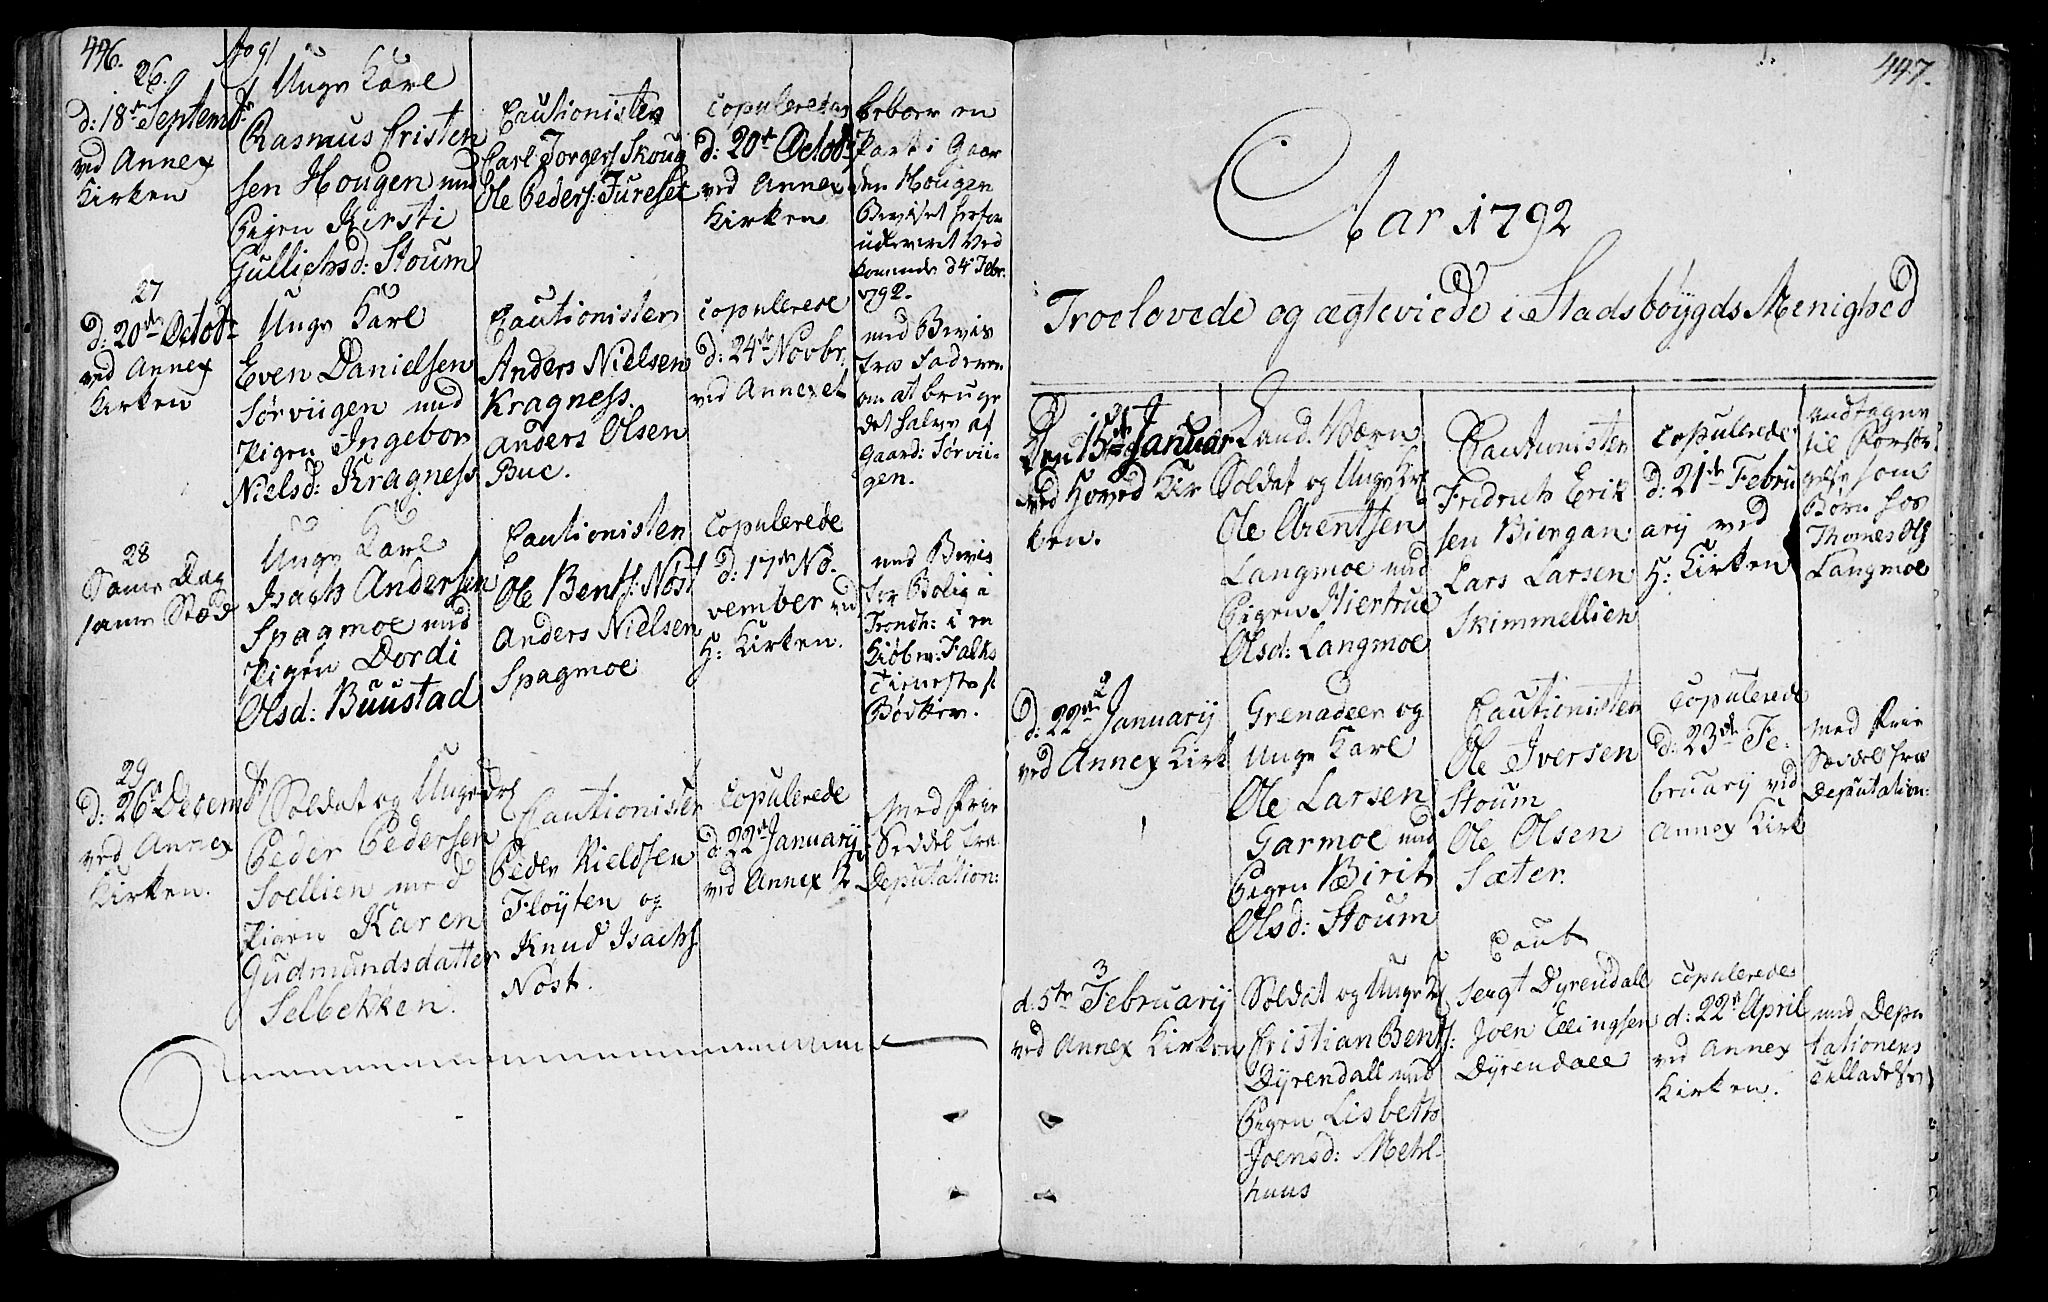 446.
Ao 91
26.
d: 18de Septembr
ved Annex
Kirken
Unge Karl
Rasmus Cristen
sen Hougen med
Pigen Kirsti
Gullichsd: Stoum
Cautionister
Carl Jorgers Skoug
Ole Peders: Jureset
copulerede
d: 20de Octob:
ved Annex
Kirken
beboer en
Part i Gaar
den Hougen
Beviset herfor
udleveret ved
kommende d 4de Febr:
1792.
27
d: 20de Octobr
ved Annex
Kirken
Unge Karl
Even Danielsen
Sørviigen med
Pigen Ingebor
Nielsd: Kragness
Cautionister
Anders Nielsen
Kragness.
Anders Olsen
Bue.
copulerede
d: 24de Novbr.
ved Annexet
med Bevis
fra Faderen
om at bruge
det halve af
Gaard: Sørvii-
gen.
28
Same Dag
same Stæd
Unge Karl
Isach Andersen
Spagmoe med
Pigen Dordi
Olsd: Buustad
Cautionister
Ole Bents: Nøst
Anders Nielsen
Spagmoe
Copulerede
d: 17de No-
vember ved
H: Kirken.
med Bevis
for Bolig i
Trondh: i en
Kiøbm: Falks
Tieneste s
Bødker.
29
d: 26de Decembr
ved Annex
Kirken.
Soldat og Unge Karl
Peder Pedersen
Soellien med
Pigen Karen
Gudmundsdatter
Selbekken.
Cautionister
Peder Kieldsen
Fløyten og
Knud Isachs
Nøst.
copulerede
d: 22de January
ved Annex K
Med Frie
Seddel fra
Deputation:
447.
Aar 1792
Troelovede og ægteviede i Stadsbøygds Menighed
Den 15de Januar
ved Hoved Kir
ken.
Land Værn
Soldat og Unge Karl
Ole Arentsen
Langmoe med
Pigen Giertrue
Olsd: Langmoe
Cautionister
Fridrich Erik
sen Biergan
Lars Larsen
Skimmellien
copulerede
d: 21de Febru
arij ved
H: Kirken
andtagne
til Forsør
gelse som
Børn hos
Thomes Ols
Langmoe
2
d: 22de January
ved Annex Kirk
Grenadeer og
Unge Karl
Ole Larsen
Garmoe med
Pigen Birit
Olsd: Stoum
Cautionister
Ole Iversen
Stoum
Ole Olsen
Sæter.
copulerede
d: 23de Fe-
bruarij ved
Annex Kirk
Med Frie
Seddel fra
Deputation:
3
d. 5te February
ved Annex Kirken
Soldat og Unge K
Cristian Bents:
Dyrendall med
Pigen Lisbeth
Joensd: Mehl-
huus
Caut
Sergt Dyrendall
Joen Ellingsen
Dyrendall
copulerede
d: 22de April
ved Annex
Kirken.
med Depu
tationens
Tilladelse